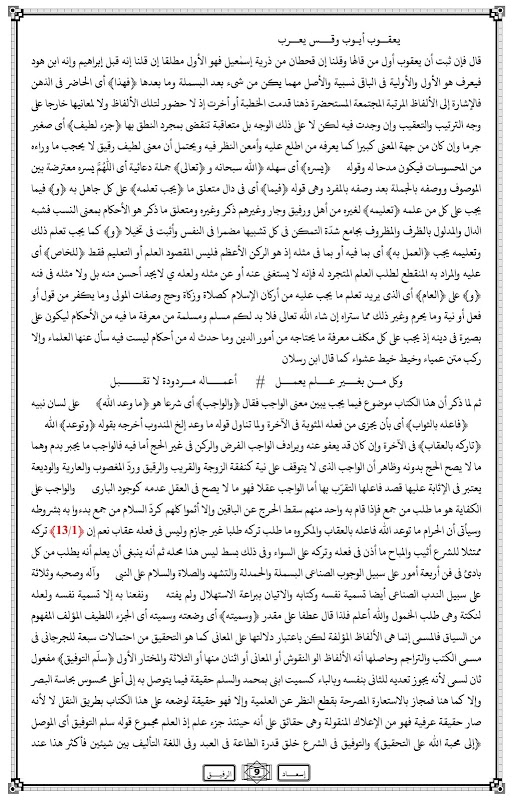 يعقـوب أيـوب وقـس يعـرب
قال فإن ثبت أن يعقوب أول من قالها وقلنا إن قحطان من ذرية إسمعيل فهو الأول مطلقا إن قلنا إنه قبل إبراهيم وإنه ابن هود
فيعرف هو الأول والأولية فى الباقى نسبية والأصل مهما يكن من شىء بعد البسملة وما بعدها ﴿فهذا﴾ أى الحاضر فى الذهن
فالإشارة إلى الألفاظ المرتبة المجتمعة المستحضرة ذهنا قدمت الخطبة أو أخرت إذ لا حضور لتلك الألفاظ ولا لمعانيها خارجا على
وجه الترتيب والتعقيب وإن وجدت فيه لكن لا على ذلك الوجه بل متعاقبة تنقضى بمجرد النطق بها ﴿جزء لطيف﴾ أى صغير
جرما وإن كان من جهة المعنى كبيرا كما يعرفه من اطلع عليه وأمعن النظر فيه ويحتمل أن معنى لطيف رقيق لا يحجب ما وراءه
من المحسوسات فيكون مدحا له وقوله ﴿يسره﴾ أى سهله ﴿الله سبحانه و ﴿تعالى﴾ جملة دعائية أى اللهُمَّ يسره معترضة بين
الموصوف ووصفه بالجملة بعد وصفه بالمفرد وهى قوله ﴿فيما﴾ أى فى دال متعلق ما ﴿يجب تعلمه﴾ على كل جاهل به ﴿و﴾ فيما
يجب على كل من علمه ﴿تعليمه﴾ لغيره من أهل ورقيق وجار وغيرهم ذكر وغيره ومتعلق ما ذكر هو الأحكام بمعنى النسب فشبه
الدال والمدلول بالظرف والمظروف بجامع شدّة التمكن فى كل تشبيها مضمرا فى النفس وأثبت فى تخيلا ﴿و﴾ كما يجب تعلم ذلك
وتعليمه يجب ﴿العمل به﴾ أى بما فيه أو بما فى مثله إذ هو الركن الأعظم فليس المقصود العلم أو التعليم فقط ﴿للخاص﴾ أى
عليه والمراد به المنقطع لطلب العلم المتجرد له فإنه لا يستغنى عنه أو عن مثله ولعله ى لايجد أحسن منه بل ولا مثله فى فنه
﴿و﴾ على ﴿العام﴾ أى الذى يريد تعلم ما يجب عليه من أركان الإسلام كصلاة وزكاة وحج وصفات المولى وما يكفر من قول أو
فعل أو نية وما يحرم وغير ذلك مما ستراه إن شاء الله تعالى فلا بد لكم مسلم ومسلمة من معرفة ما فيه من الأحكام ليكون على
بصيرة فى دينه إذ يجب على كل مكلف معرفة ما يحتاجه من أمور الدين وما حدث له من أحكام ليست فيه سأل عنها العلماء وإلا
ركب متن عمياء وخبط خبط عشواء كما قال ابن رسلان
وكل مـن بغيـر علـم يعمـل # أعمـاله مـردودة لا تقـبـل
ثم لما ذكر أن هذا الكتاب موضوع فيما يجب يبين معنى الواجب فقال ﴿والواجب﴾ أى شرعا هو ﴿ما وعد الله﴾ على لسان نبيه
﴿فاعله بالثواب﴾ أى بأن يجزى من فعله المثوبة فى الآخرة ولما تناول قوله ما وعد إلخ المندوب أخرجه بقوله ﴿وتوعد﴾ الله
﴿تاركه بالعقاب﴾ فى الآخرة وإن كان قد يعفو عنه ويرادف الواجب الفرض والركن فى غير الحج أما فيه فالواجب ما يجبر بدم وهما
ما لا يصح الحج بدونه وظاهر أن الواجب الذى لا يتوقف على نية كنفقة الزوجة والقريب والرقيق وردّ المغصوب والعارية والوديعة
يعتبر فى الإثابة عليها قصد فاعلها التقرّب بها أما الواجب عقلا فهو ما لا يصح فى العقل عدمه كوجود البارى والواجب على
الكفاية هو ما طلب من جمع فإذا قام به واحد منهم سقط الحرج عن الباقين وإلا أثموا كلهم كردّ السلام من جمع بدءوا به بشروطه
وسيأتى أن الحرام ما توعد الله فاعله بالعقاب والمكروه ما طلب تركه طلبا غير جازم وليس فى فعله عقاب نعم إن ﴿13/1﴾ تركه
ممتثلا للشرع أثيب والمباح ما أذن فى فعله وتركه على السواء وفى ذلك بسط ليس هذا محله ثم أنه ينبغى أن يعلم أنه يطلب من كل
بادئ فى فن أربعة أمور على سبيل الوجوب الصناعى البسملة والحمدلة والتشهد والصلاة والسلام على النبى وآله وصحبه وثلاثة
على سبيل الندب الصناعى أيضا تسمية نفسه وكتابه والاتيان ببراعة الاستهلال ولم يفته ونفعنا به إلا تسمية نفسه ولعله
لنكتة وهى طلب الخمول والله أعلم فلذا قال عطفا على مقدر ﴿وسميته﴾ أى وضعته وسميته أى الجزء اللطيف المؤلف المفهوم
من السياق فالمسمى إنما هى الألفاظ المؤلفة لكن باعتبار دلالتها على المعانى كما هو التحقيق من احتمالات سبعة للجرجانى فى
مسمى الكتب والتراجم وحاصلها أنه الألفاظ الو النقوش أو المعانى أو اثنان منها أو الثلاثة والمختار الأول ﴿سلّم التوفيق﴾ مفعول
ثان لسمى لأنه يجوز تعديه للثانى بنفسه وبالباء كسميت ابنى بمحمد والسلم حقيقة فيما يتوصل به إلى أعلى محسوس بحاسة البصر
وإلا كما هنا فمجاز بالاستعارة المصرحة بقطع النظر عن العلمية وإلا فهو حقيقة لوضعه على هذا الكتاب بطريق النقل لا لأنه
صار حقيقة عرفية فهو من الإعلاك المنقولة وهى حقائق على أنه حينئذ جزء علم إذ العلم مجموع قوله سلم التوفيق أى الموصل
﴿إلى محبة الله على التحقيق﴾ والتوفيق فى الشرع خلق قدرة الطاعة فى العبد وفى اللغة التأليف بين شيئين فأكثر هذا عند
إسعـاد 9 الرفيـق